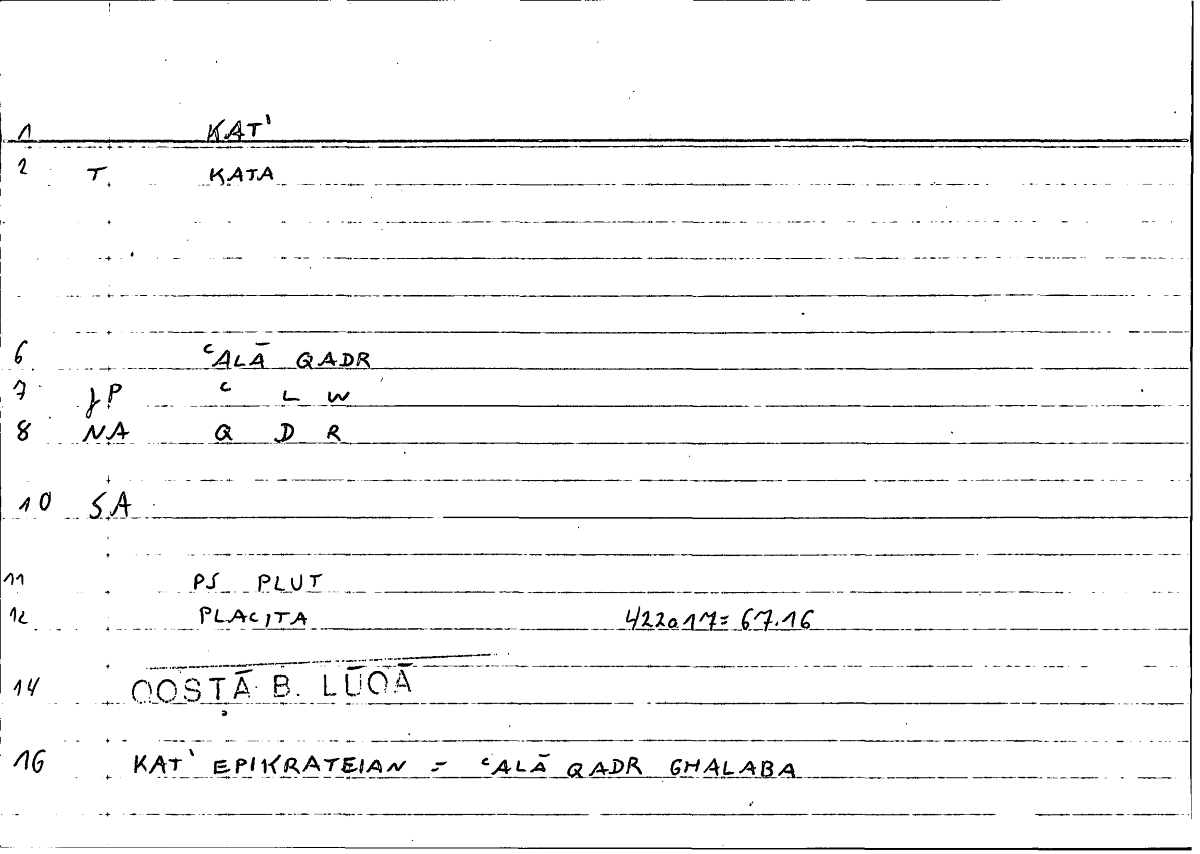 1 KAT'
2 T. KATA
6 ʿALĀ QADR
7 JP ʿ L W
8 NA Q D R
10 SA
11 PS PLUT
12 PLACITA 422a17= 67.16
14 QOSṬĀ B. LŪQĀ
16 KAT' EPIKRATEIAN = ʿALĀ QADR GHALABA